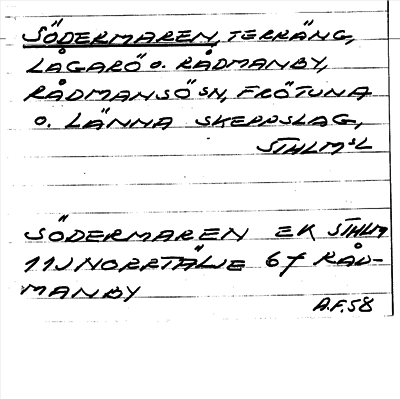 SÖDERMAREN, TERRÄNG,
LÅGARÖ O. RÅDMANBY,
RÅDMANSÖ SN, FRÖTUNA
O. LÄNNA SKEPPSLAG,
STHLMS L
SÖDERMAREN EK STHLM
11J NORRTÄLJE 6f RÅD-
MANBY
A.F.58